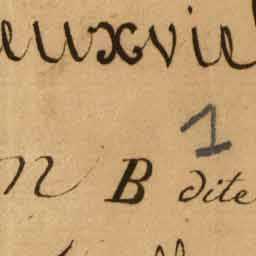 euxvie
1
n B dite